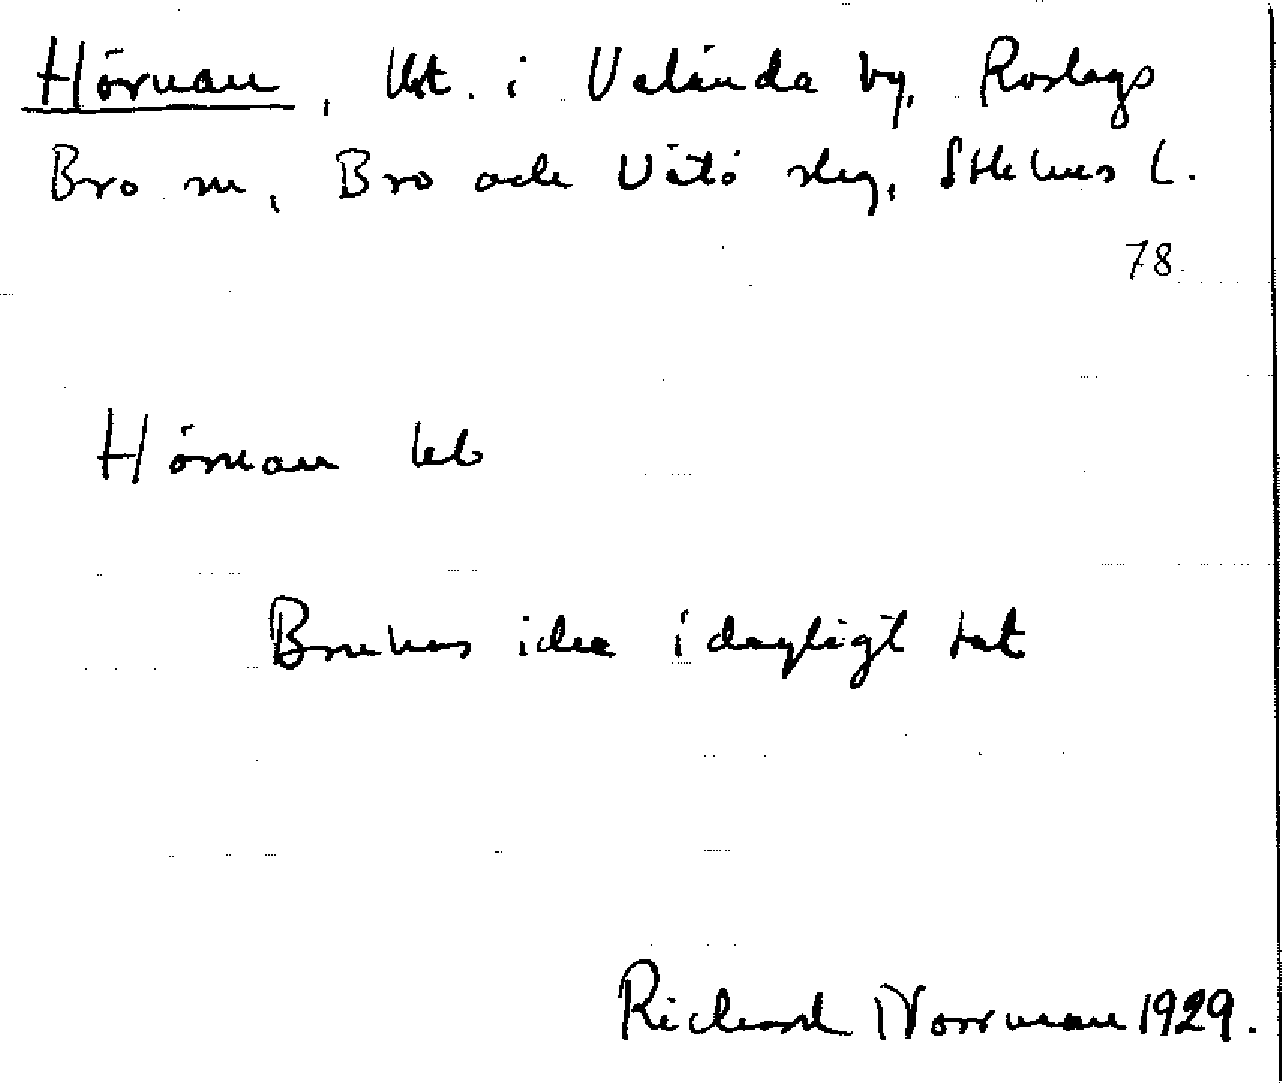 Hörnan, lht. i Utlunda by, Roslags
Bro sn, Bro och Vätö skg, Sthlms l.
78
Hörnan leb
Brukas icke i dagligt tal
Richard Norrman 1929.